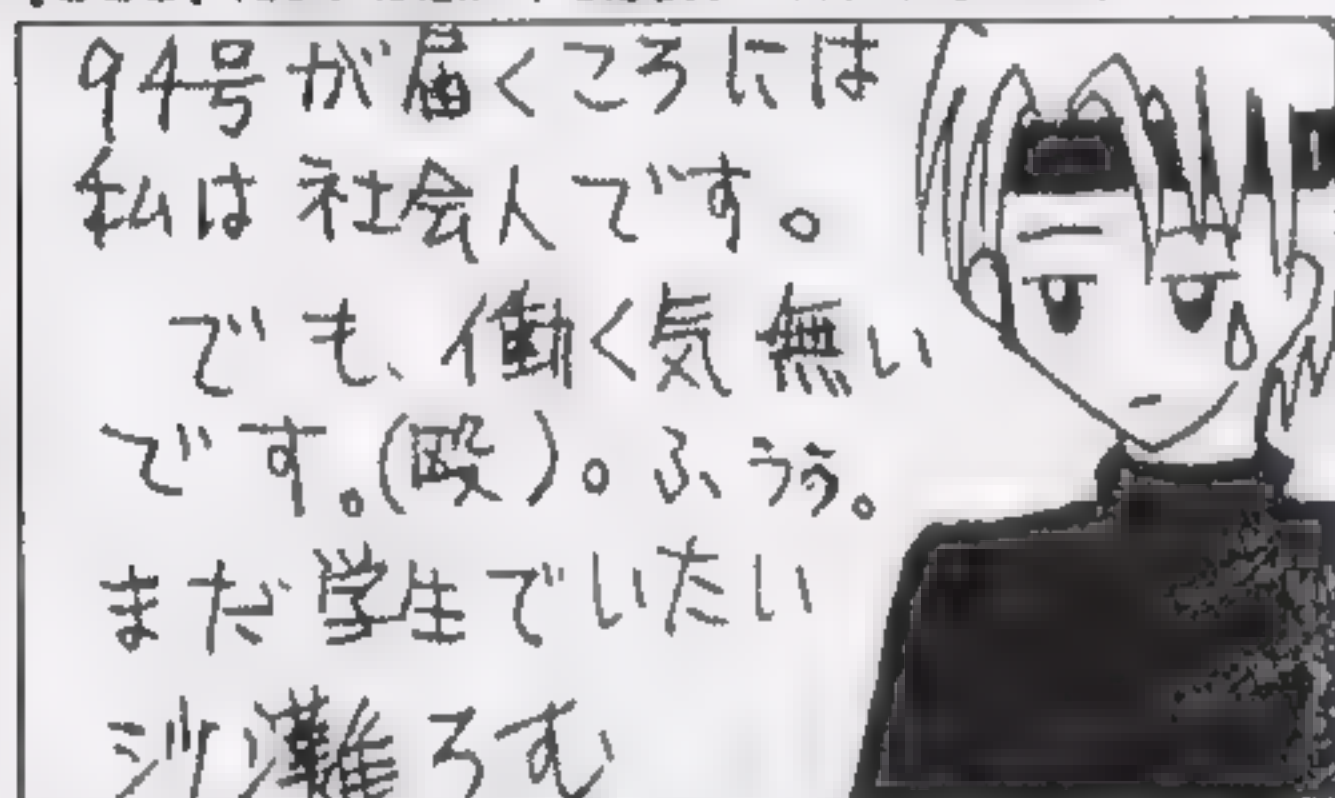 94号が届くころには
私は社会人です。
でも、働く気無い
です。(殴)。ふうぅ。
まだ学生でいたい
沙灘ろむ